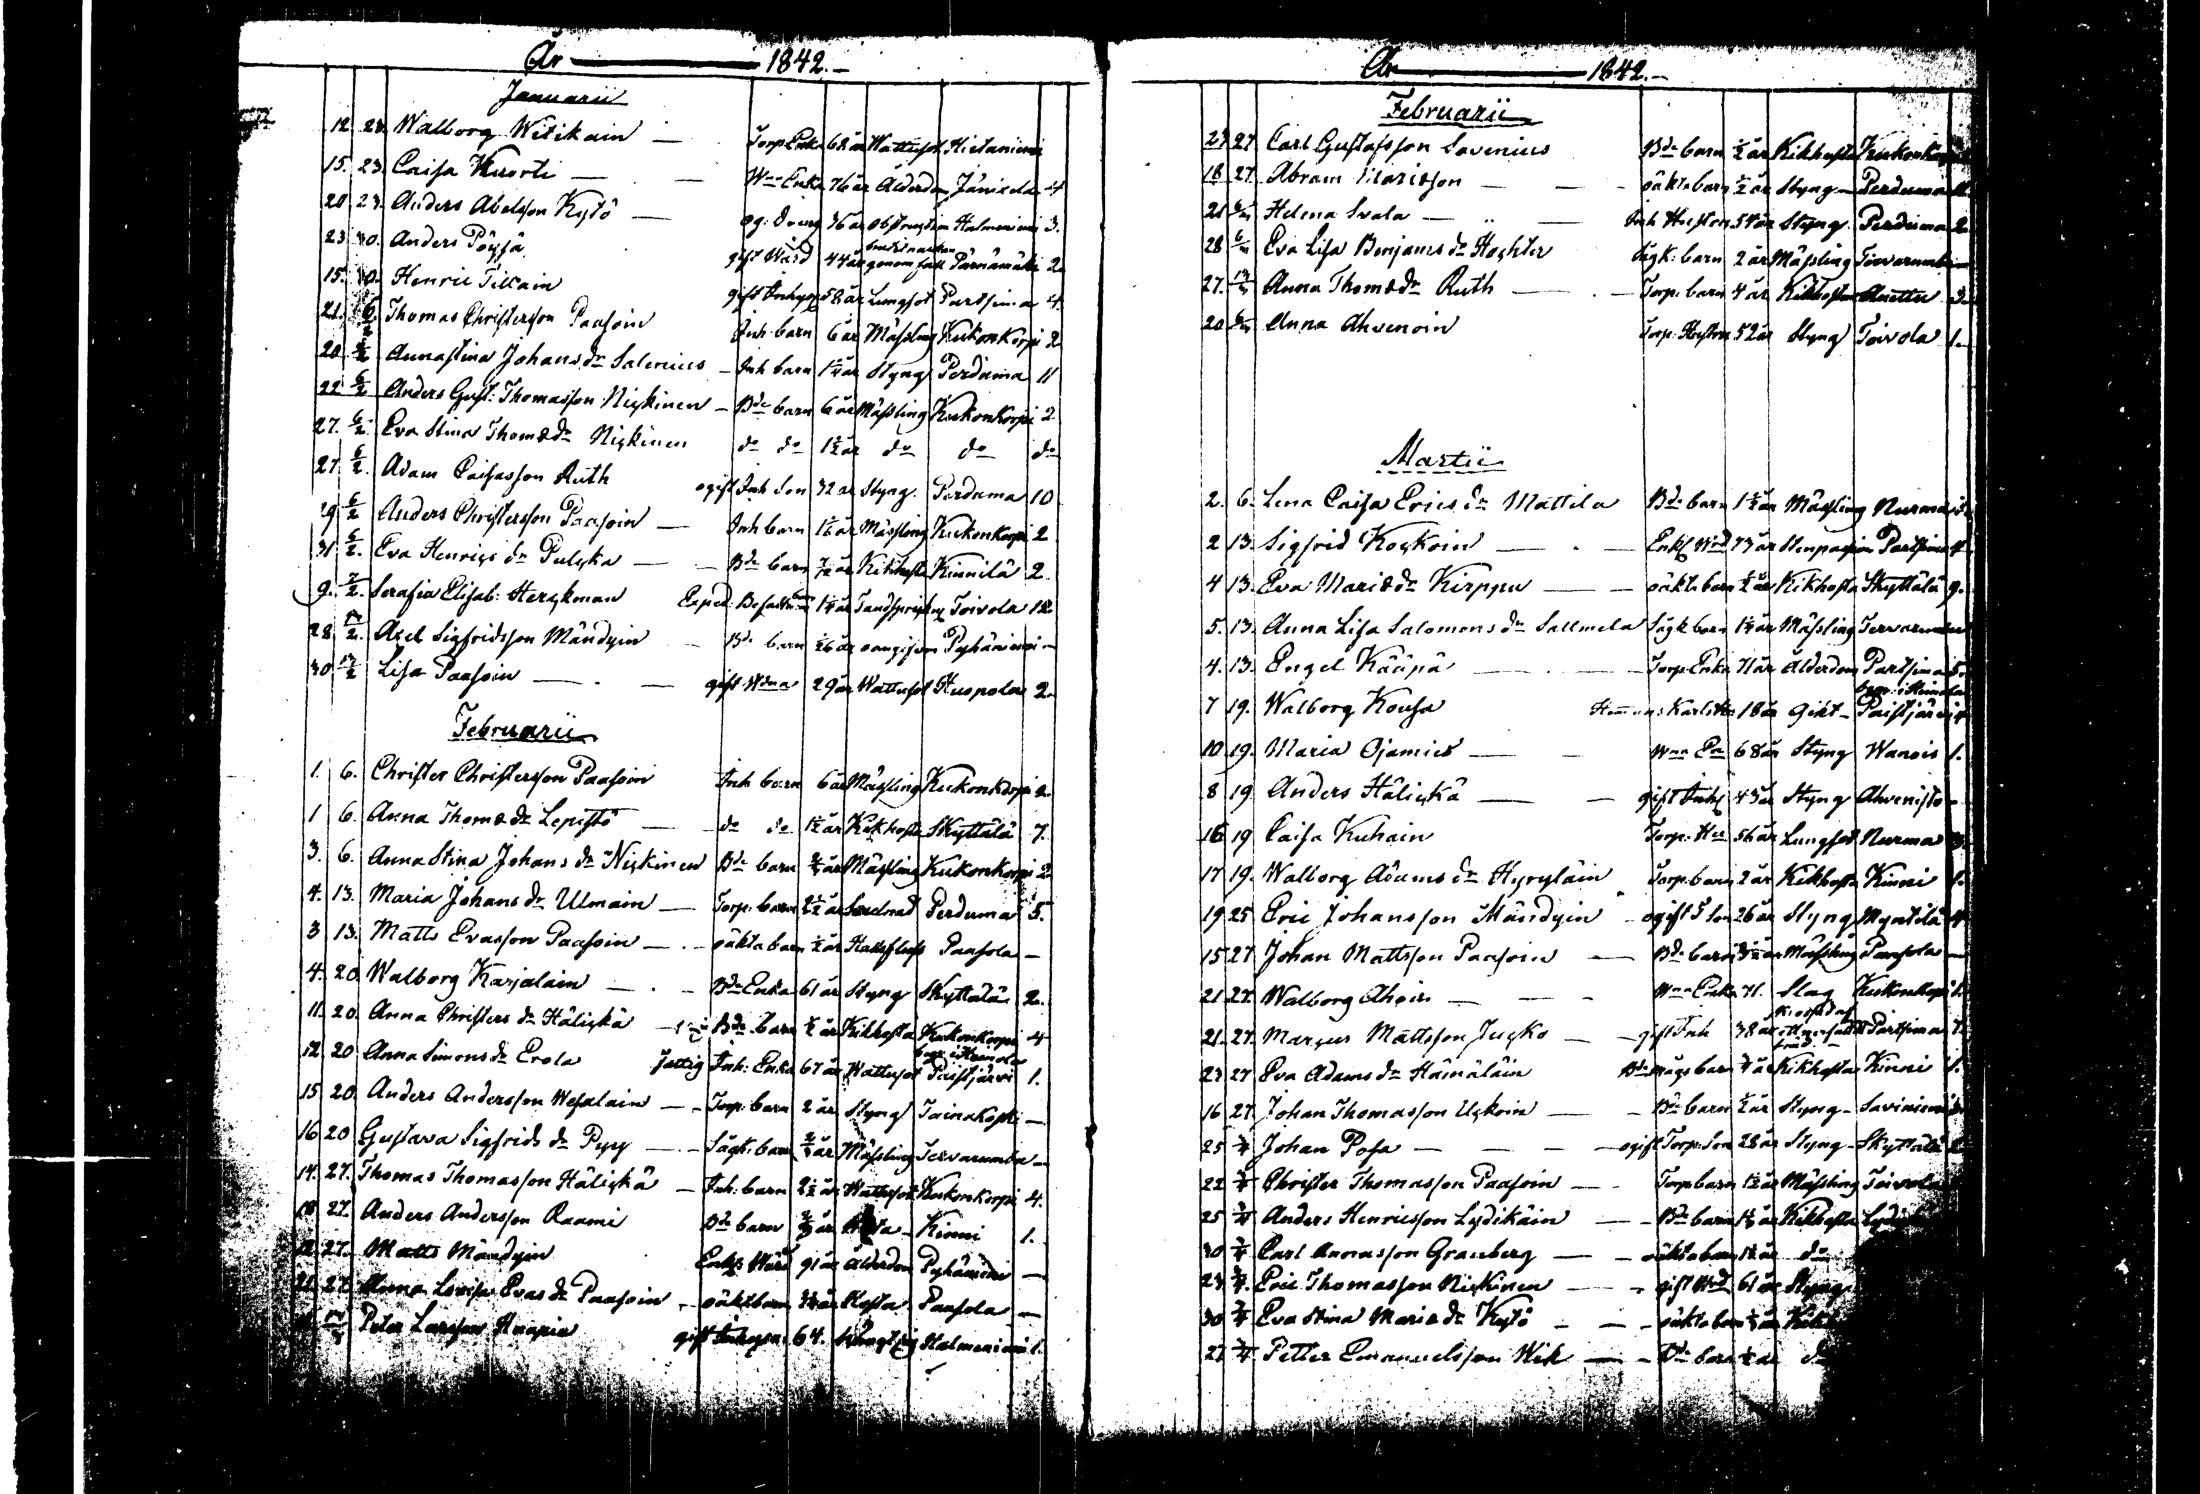 År 1842.
Januarii
12. 23. Walborg Witikain — Torp Enka 68 år Wattusot Hietaniemi
15. 23. Caisa Kuorti — Wnn Enka 76 år Ålderdom Jänixela 4
20 23. Anders Abelsson Kytö — og. dräng 36 år obstruction Halmeniemi 3.
23 30. Anders Pöyjä gift Wärd 44 år genom fall Pärnämäki 2
15. 30. Henric Tillain gift Inhys 58 år Lungsot Partsima 4
21. 6/2 Thomas Christersson Paasoin Inh barn 6 år Mässling Kukonkorpi 2
20. 6/2 Annastina Johans dr Salenius — Inh barn år Styng Perduma 11
22 6/2 Anders Gust: Thomasson Niskinen — Bde barn 6 år Mässling Kukonkorpi 2
27. 6/2 Eva Stina Thomæ dr Niskinen do do 1½ år do do do
27 6/2. Adam Caisasson Ruth ogift Inh Son 32 år Styng. Perduma 10
29 6/2 Anders Christersson Paasoin — Inh barn år Mässling Kukonkorpi 2
31 6/2. Eva Henrics dr Pulcka — Bde barn år Kikhosta Kinnilä 2
9. 7/2. Serafia Elisab: Herckman Exped. Befallnm år Tandsprickng Toivola 12
28. 13/2. Axel Sigfridsson Mändyin — Bde barn år Pyhäniemi —
30 13/2 Lisa Paasoin — gift Wdna 29 år Wattusot Huopola 2.
Februarii
1. 6. Christer Christersson Paasoin Inh barn 6 år Mässling Kukonkorpi 2
1 6. Anna Thomæ dr Lepistö — do do 1½ år Kikhosta Skyttälä 7.
3. 6. Anna Stina Johans dr Niskinen Bde barn år Mässling Kukonkorpi 2
4. 13. Maria Johans dr Ulmain — Torp. barn 2½ år Perduma 5.
3 13. Matts Evasson Paasoin — oäkta barn ½ år Paasola —
4. 20. Walborg Karjalain — Bde Enka 61 år Styng Skyttälä 2.
11. 20. Anna Christers dr Hälickä — Bde barn ½ år Kikhosta Kukonkorpi 4
12 20 Anna Simons dr Erola fattig Inh: Enka 67 år Wattusot begr. i Heinola Paistjärvi 1.
15 20. Anders Andersson Wesalain — Torp: barn 2 år Styng Tainakoski —
16 20 Gustava Sigfrids dr Pyy — Sågk. barn år Mässling Tervarumba —
14. 27. Thomas Thomasson Hälickä — Inh: barn 2½ år Wattusot Kukonkorpi 4.
27. Anders Andersson Raami Bde barn år Hosta — Kinni 1.
27. Matts Mändyin Enkl. Wärd 91 år Ålderdom Pyhäniemi —
21 27. Anna Lovisa Evas dr Paasoin — oäkt barn år Hosta Paasola —
Peter Larsson Haapia gift Inhyses 64. Halmeniemi 1.
År 1842.
Februarii
23 27 Carl Gustafsson Savenius Bde barn ½ år Kikhosta Kukonkorpi
18 27. Abram — oäkta barn ½ år Styng — Perduma
21 Helena Svala — Inh Hustru 54 år Styng Perduma 2
28 Eva Lisa Benjams dr Hochter Sågk: barn 2 år Mässling Tervarumba —
27. Anna Thomæ dr Ruth — Torp: barn 4 år Kikhosta Anettu 3.
20 Anna Ahvenoin Torp. Hustru 52 år Styng Toivola 1.
Martii
2. 6. Lena Caisa Erics dr Mattila Bde barn 1½ år Mässling Nurmaa
2 13. Sigfrid Kockoin — Enkl Wärd 73 år Stenpassion Partsima
4 13. Eva Mariæ dr Kirppu — oäkta barn ½ år Kikhosta Skyttälä 9.
5. 13. Anna Lisa Salomons dr Sallmela Sågk barn år Mässling Tervarumba
4. 13. Engel Kääpä — Torp. Enka 71 år Ålderdom Partsima 5.
7 19. Walborg Kousa 18 år Gikt — begr. i Heinola Paistjärvi
10 19. Maria Ojamies — Wnn Ea 68 år Styng Wanois 1.
8 19 Anders Hälickä — gift Inh 43 år Styng Ahvenisto —
16 19 Caisa Kuhain Torp. Hu 56 år Lungsot Nurmaa
17 19. Walborg Adams dr Hyryläin Torp. barn 2 år Kikhosta Kinni 1.
19 25 Eric Johansson Mändyin — ogift T Son 26 år Styng Myntilä 4
15 27. Johan Mattsson Paasoin — Bde barn år Mässling Paasola —
21 27. Walborg Ahoin — Wnn Enka 71. Slag Kukonkorpi
21. 27. Marcus Mattsson Jucko — gift Inh 38 år Partsima
23 27 Eva Adams dr Hämäläin Bde mågs barn år Kikhosta Kinni 1.
16 27. Johan Thomasson Uckoin — Bde barn ½ år Styng — Saviniemi
25 Johan Posa — ogift Torp. Son 28 år Styng — Skyttälä
22 Christer Thomasson Paasoin — Torp barn 1½ år Mässling Toivola
25 Anders Henricsson Lydikäin — Bde barn år Kikhosta
30 Carl Annasson Granberg — oäkta barn år do
23 Eric Thomasson Niskinen — gift Wd 61 år Styng
30 Eva Stina Mariæ dr Kytö — oäkta barn år
27 Petter Emanuelsson Wik — Bde barn år do